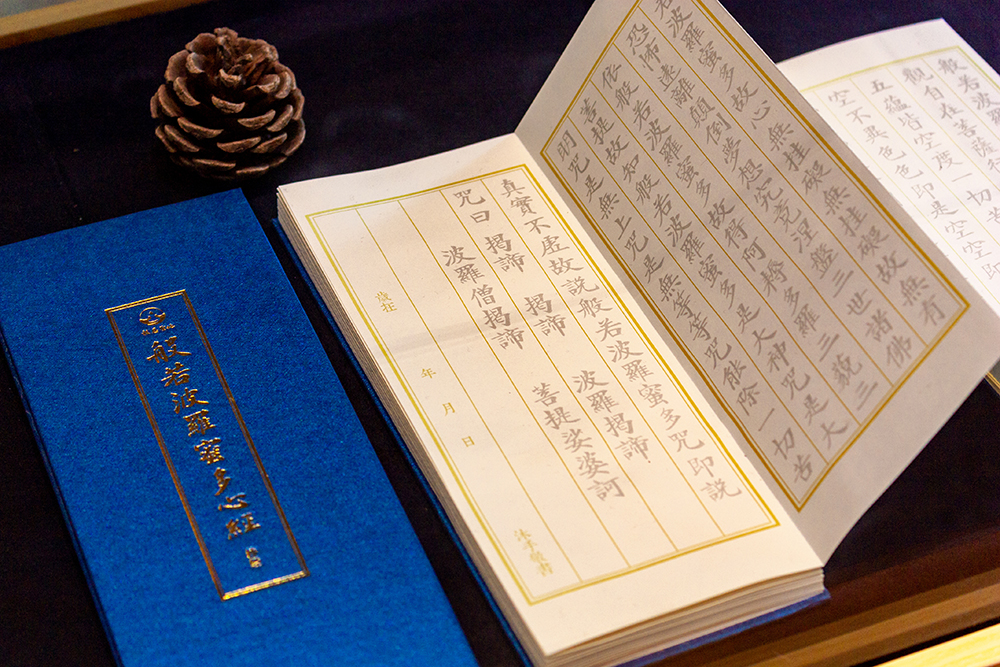 般若波羅蜜多心經
般若波羅
觀自在菩薩
五蘊皆空度一切苦
空不異色色即是空空即
若波羅蜜多故心無挂礙無挂礙故無有
恐怖遠離顛倒夢想究竟涅盤三世諸佛
依般若波羅蜜多故得阿耨多羅三藐三
菩提故知般若波羅蜜多是大神咒是大
明咒是無上咒是無等等咒能除一切苦
真實不虛故說般若波羅蜜多咒即說
咒曰 揭諦 揭諦 波羅揭諦
波羅僧揭諦 菩提娑婆訶
歲在 年 月 日 沐手敬書